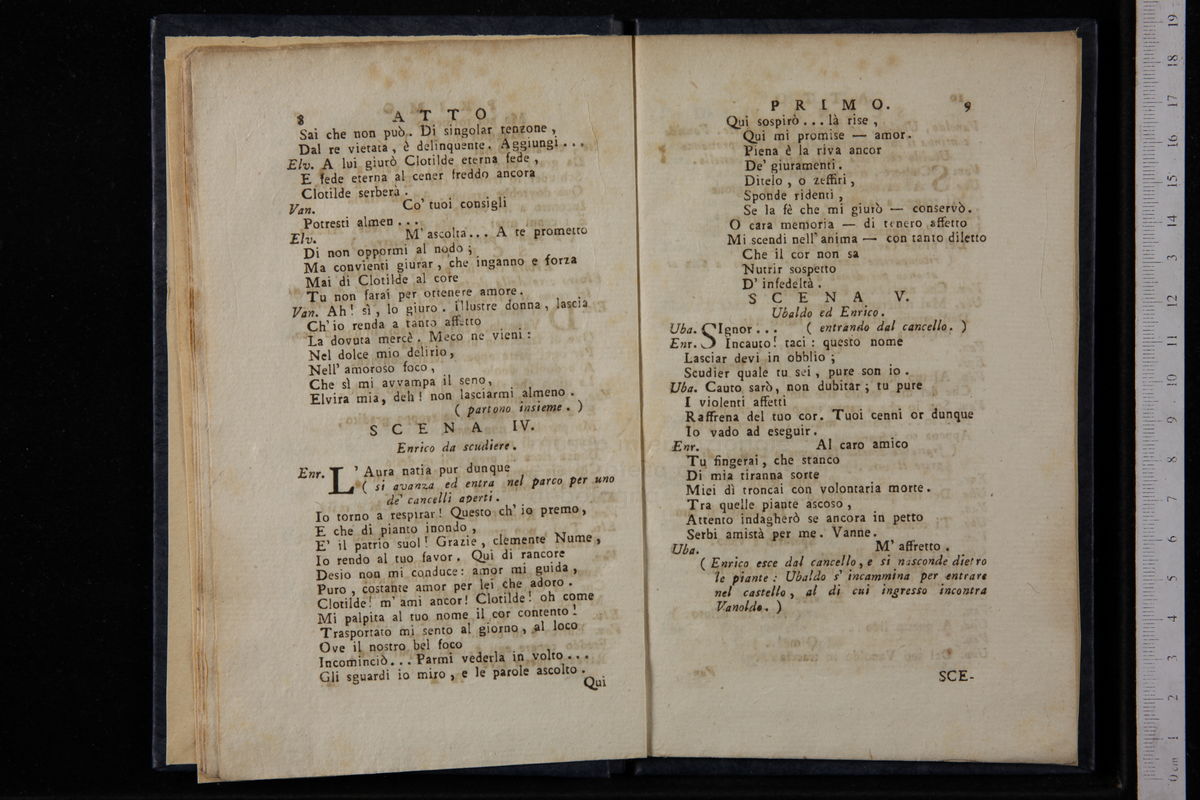 8 ATTO
Sai che non può. Di singolar tenzone,
Dal re vietata, è delinquente. Aggiungi...
Elv. A lui giurò Clotilde eterna fede,
E fede eterna al cener freddo ancora
Clotilde serberà.
Van. Co' tuoi consigli
Potresti almen...
Elv. M'ascolta... A te prometto
Di non oppormi al nodo;
Ma convienti giurar, che inganno e forza
Mai di Clotilde al core
Tu non farai per ottenere amore.
Van. Ah! sì, lo giuro. illustre donna, lascia
Ch'io renda a tanto affetto
La dovuta mercè. Meco ne vieni:
Nel dolce mio delirio,
Nell'amoroso foco,
Che sì mi avvampa il seno,
Elvira mia, deh! non lasciarmi almeno.
( partono insieme. )
SCENA IV.
Enrico da scudiere.
Enr. L'Aura natia pur dunque
( si avanza ed entra nel parco per uno
de' cancelli aperti.
Io torno a respirar! Questo ch'io premo,
E che di pianto inondo,
E' il patrio suol! Grazie, clemente Nume,
Io rendo al tuo favor. Qui di rancore
Desio non mi conduce: amor mi guida,
Puro, costante amor per lei che adoro.
Clotilde! m'ami ancor! Clotilde! oh come
Mi palpita al tuo nome il cor contento!
Trasportato mi sento al giorno, al loco
Ove il nostro bel foco
Incominciò... Parmi vederla in volto...
Gli sguardi io miro, e le parole ascolto.
Qui
PRIMO. 9
Qui sospirò... là rise,
Qui mi promise — amor.
Piena è la riva ancor
De' giuramenti.
Ditelo, o zeffiri,
Sponde ridenti,
Se la fè che mi giurò — conservò.
O cara memoria — di tenero affetto
Mi scendi nell'anima — con tanto diletto
Che il cor non sa
Nutrir sospetto
D'infedeltà.
SCENA V.
Ubaldo ed Enrico.
Uba. SIgnor... ( entrando dal cancello. )
Enr. Incauto! taci: questo nome
Lasciar devi in obblìo;
Scudier quale tu sei, pure son io.
Uba. Cauto sarò, non dubitar; tu pure
I violenti affetti
Raffrena del tuo cor. Tuoi cenni or dunque
Io vado ad eseguir.
Enr. Al caro amico
Tu fingerai, che stanco
Di mia tiranna sorte
Miei dì troncai con volontaria morte.
Tra quelle piante ascoso,
Attento indagherò se ancora in petto
Serbi amistà per me. Vanne.
Uba. M'affretto.
( Enrico esce dal cancello, e si nasconde dietro
le piante: Ubaldo s'incammina per entrare
nel castello, al di cui ingresso incontra
Vanoldo. )
SCE-
0 cm 1 2 3 4 5 6 7 8 9 10 11 12 13 14 15 16 17 18 19